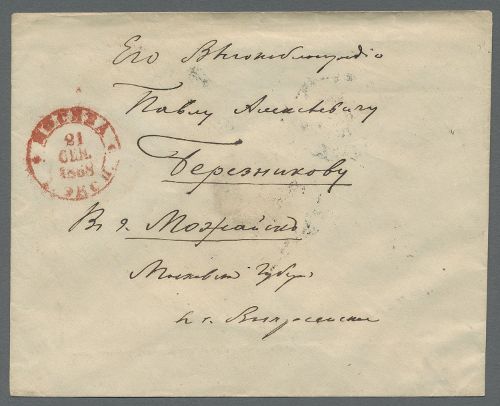 Его Высокоблагородію
Павлу Алексѣевичу
Березникову
Въ г. Можайскъ
Московской Губер
МОСКВА
21
СЕН.
1868